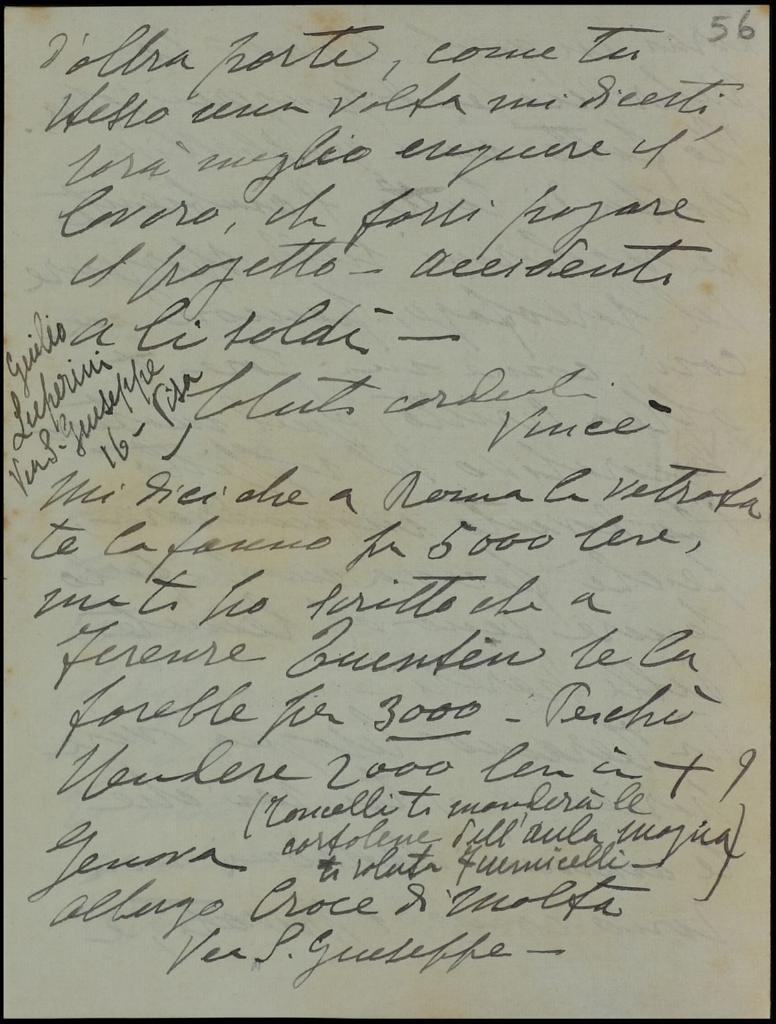 56
d'altra parte, come tu
stesso una volta mi dicesti,
sarà meglio eseguire il
lavoro, che farsi pagare
il progetto - accidenti
a li soldi -
Saluti cordiali
Vince
Giulio
Luperini
Via S. Giuseppe
16 - Pisa
Mi dici che a Roma la vetrata
te la fanno per 5000 lire,
ma ti ho scritto che a
Firenze te la
farebbe per 3000 - Perchè
spendere 2000 lire in + ?
(Roncelli ti manderà le
cartoline dell'aula magna
ti saluta -)
Genova
albergo Croce di Malta
Via S. Giuseppe -